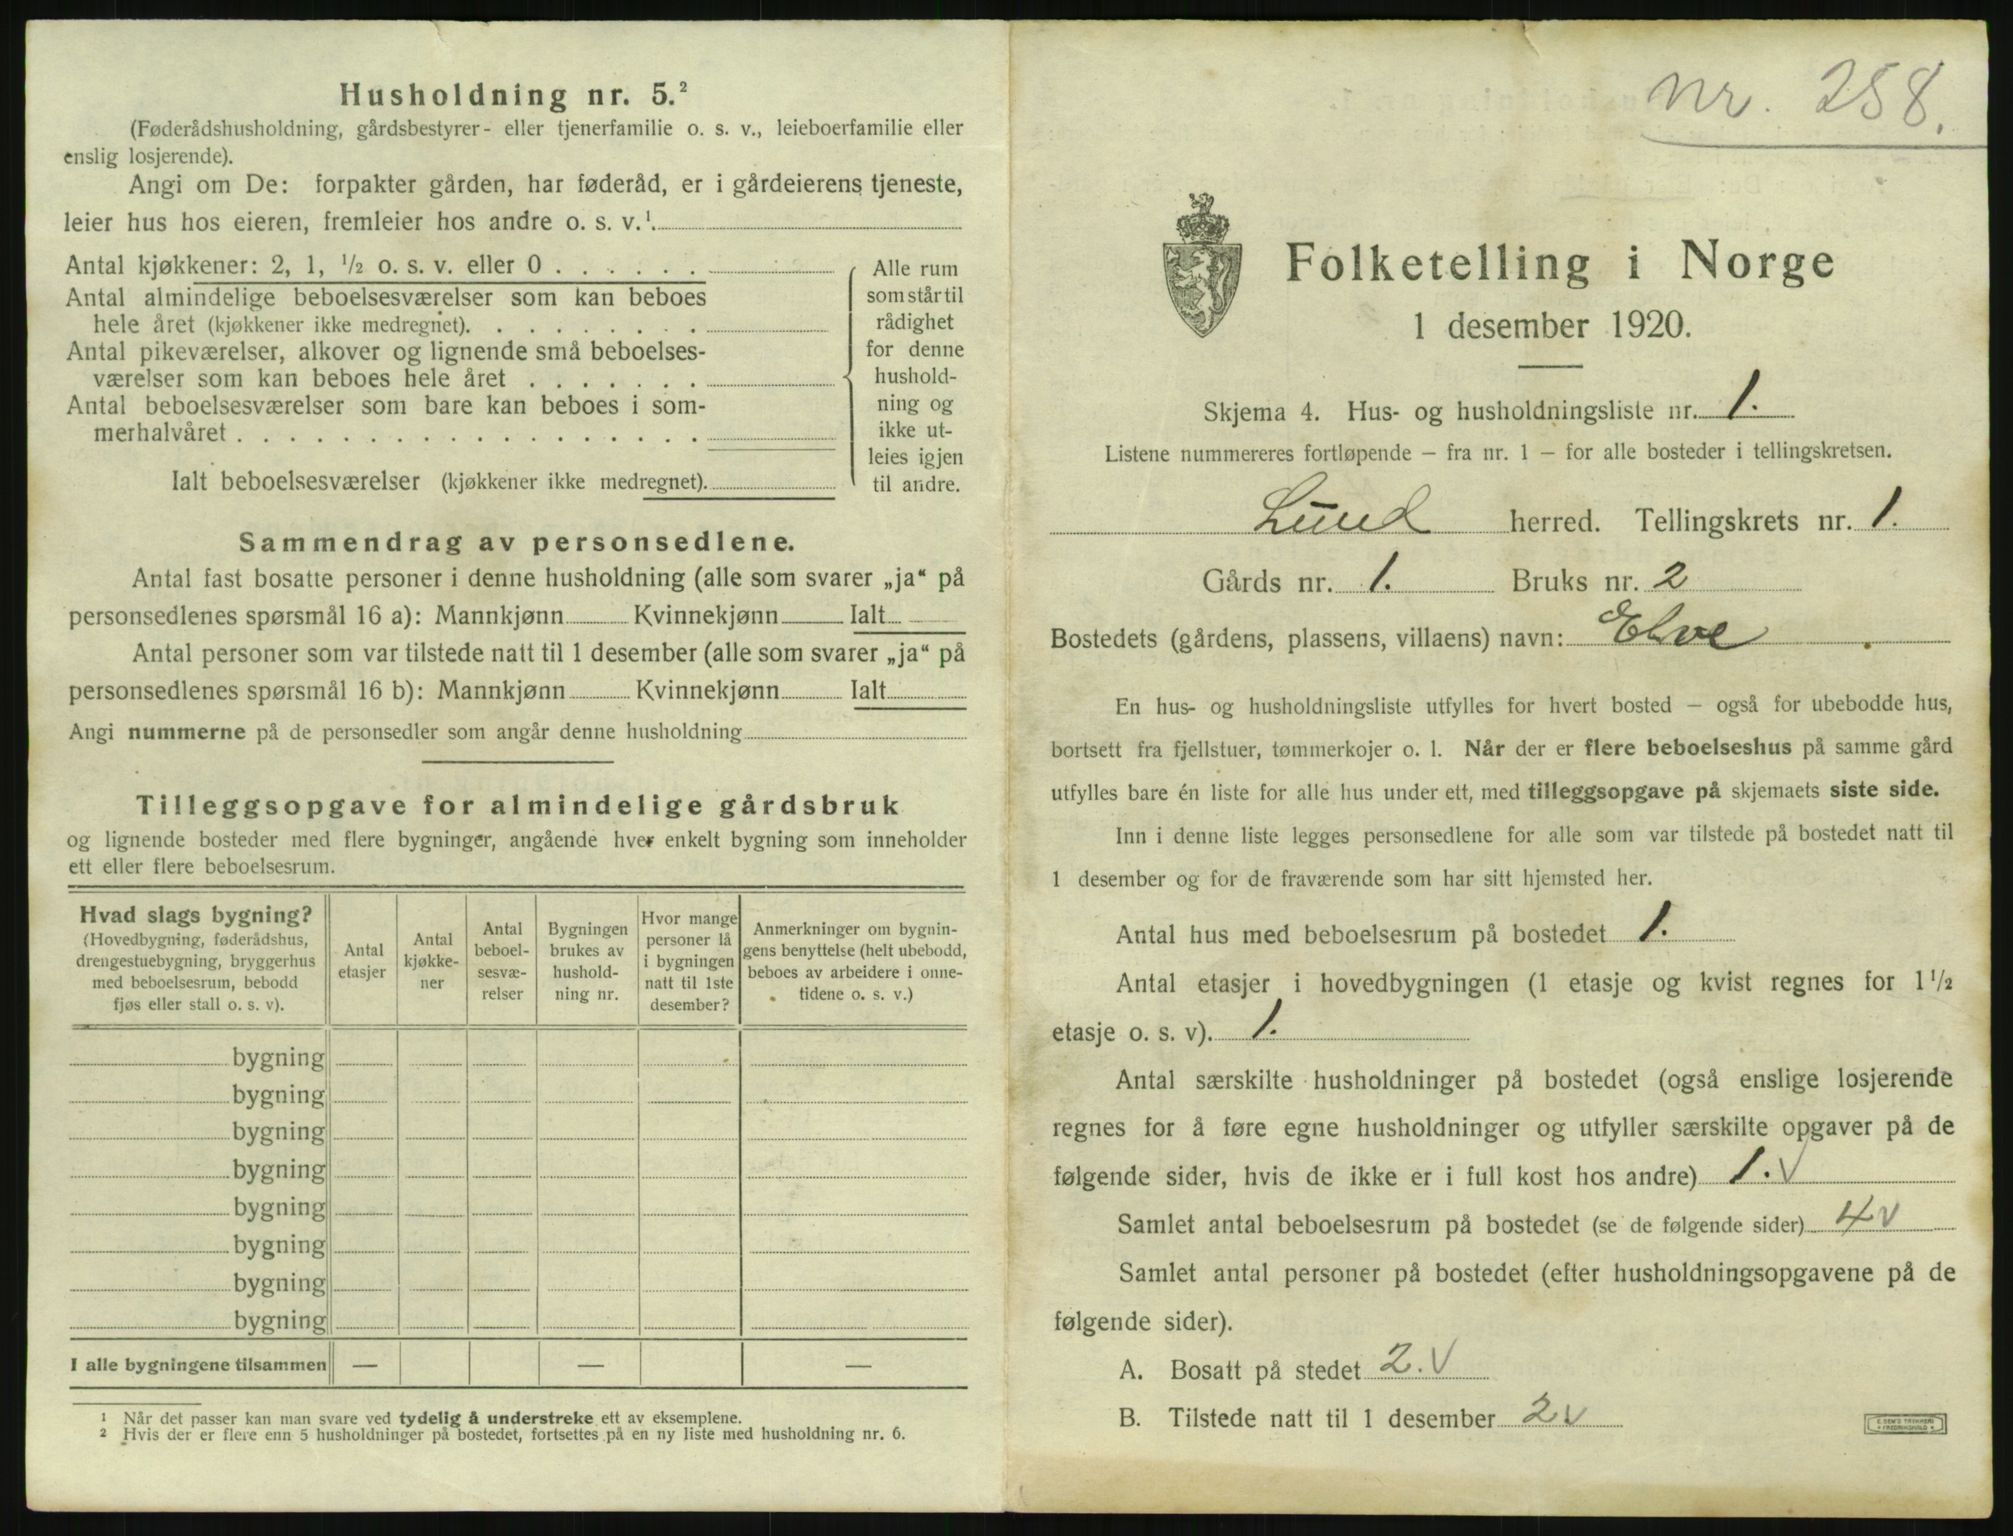 Husholdning nr. 5.²
(Føderådshusholdning, gårdsbestyrer- eller tjenerfamilie o. s. v., leieboerfamilie eller
enslig losjerende).
Angi om De: forpakter gården, har føderåd, er i gårdeierens tjeneste,
leier hus hos eieren, fremleier hos andre o. s. v.¹
Antal kjøkkener: 2, 1, ½ o. s. v. eller 0 . . . . . .
Antal almindelige beboelsesværelser som kan beboes
hele året (kjøkkener ikke medregnet). . . . . . . . .
Antal pikeværelser, alkover og lignende små beboelses-
værelser som kan beboes hele året . . . . . . .
Antal beboelsesværelser som bare kan beboes i som-
merhalvåret . . . . . . . . . . . . . . . . . .
Ialt beboelsesværelser (kjøkkener ikke medregnet).
Alle rum
som står til
rådighet
for denne
hushold-
ning og
ikke ut-
leies igjen
til andre.
Sammendrag av personsedlene.
Antal fast bosatte personer i denne husholdning (alle som svarer „ja“ på
personsedlenes spørsmål 16 a): Mannkjønn Kvinnekjønn Ialt
Antal personer som var tilstede natt til 1 desember (alle som svarer „ja“ på
personsedlenes spørsmål 16 b): Mannkjønn Kvinnekjønn Ialt
Angi nummerne på de personsedler som angår denne husholdning
Tilleggsopgave for almindelige gårdsbruk
og lignende bosteder med flere bygninger, angående hver enkelt bygning som inneholder
ett eller flere beboelsesrum.
Hvad slags bygning?
(Hovedbygning, føderådshus,
drengestuebygning, bryggerhus
med beboelsesrum, bebodd
fjøs eller stall o. s. v).
Antal
etasjer
Antal
kjøkke-
ner
Antal
beboel-
sesvæ-
relser
Bygningen
brukes av
hushold-
ning nr.
Hvor mange
personer lå
i bygningen
natt til 1ste
desember?
Anmerkninger om bygnin-
gens benyttelse (helt ubebodd,
beboes av arbeidere i onne-
tidene o. s. v.)
bygning
bygning
bygning
bygning
bygning
bygning
bygning
bygning
I alle bygningene tilsammen — — —
¹ Når det passer kan man svare ved tydelig å understreke ett av eksemplene.
² Hvis der er flere enn 5 husholdninger på bostedet, fortsettes på en ny liste med husholdning nr. 6.
nr. 258.
Folketelling i Norge
1 desember 1920.
Skjema 4. Hus- og husholdningsliste nr. 1.
Listene nummereres fortløpende – fra nr. 1 – for alle bosteder i tellingskretsen.
Lund herred. Tellingskrets nr. 1.
Gårds nr. 1. Bruks nr. 2
Bostedets (gårdens, plassens, villaens) navn: Elve
En hus- og husholdningsliste utfylles for hvert bosted – også for ubebodde hus,
bortsett fra fjellstuer, tømmerkojer o. l. Når der er flere beboelseshus på samme gård
utfylles bare én liste for alle hus under ett, med tilleggsopgave på skjemaets siste side.
Inn i denne liste legges personsedlene for alle som var tilstede på bostedet natt til
1 desember og for de fraværende som har sitt hjemsted her.
Antal hus med beboelsesrum på bostedet 1.
Antal etasjer i hovedbygningen (1 etasje og kvist regnes for 1½
etasje o. s. v). 1.
Antal særskilte husholdninger på bostedet (også enslige losjerende
regnes for å føre egne husholdninger og utfyller særskilte opgaver på de
følgende sider, hvis de ikke er i full kost hos andre) 1. v
Samlet antal beboelsesrum på bostedet (se de følgende sider) 4 v
Samlet antal personer på bostedet (efter husholdningsopgavene på de
følgende sider).
A. Bosatt på stedet 2. v
B. Tilstede natt til 1 desember 2 v